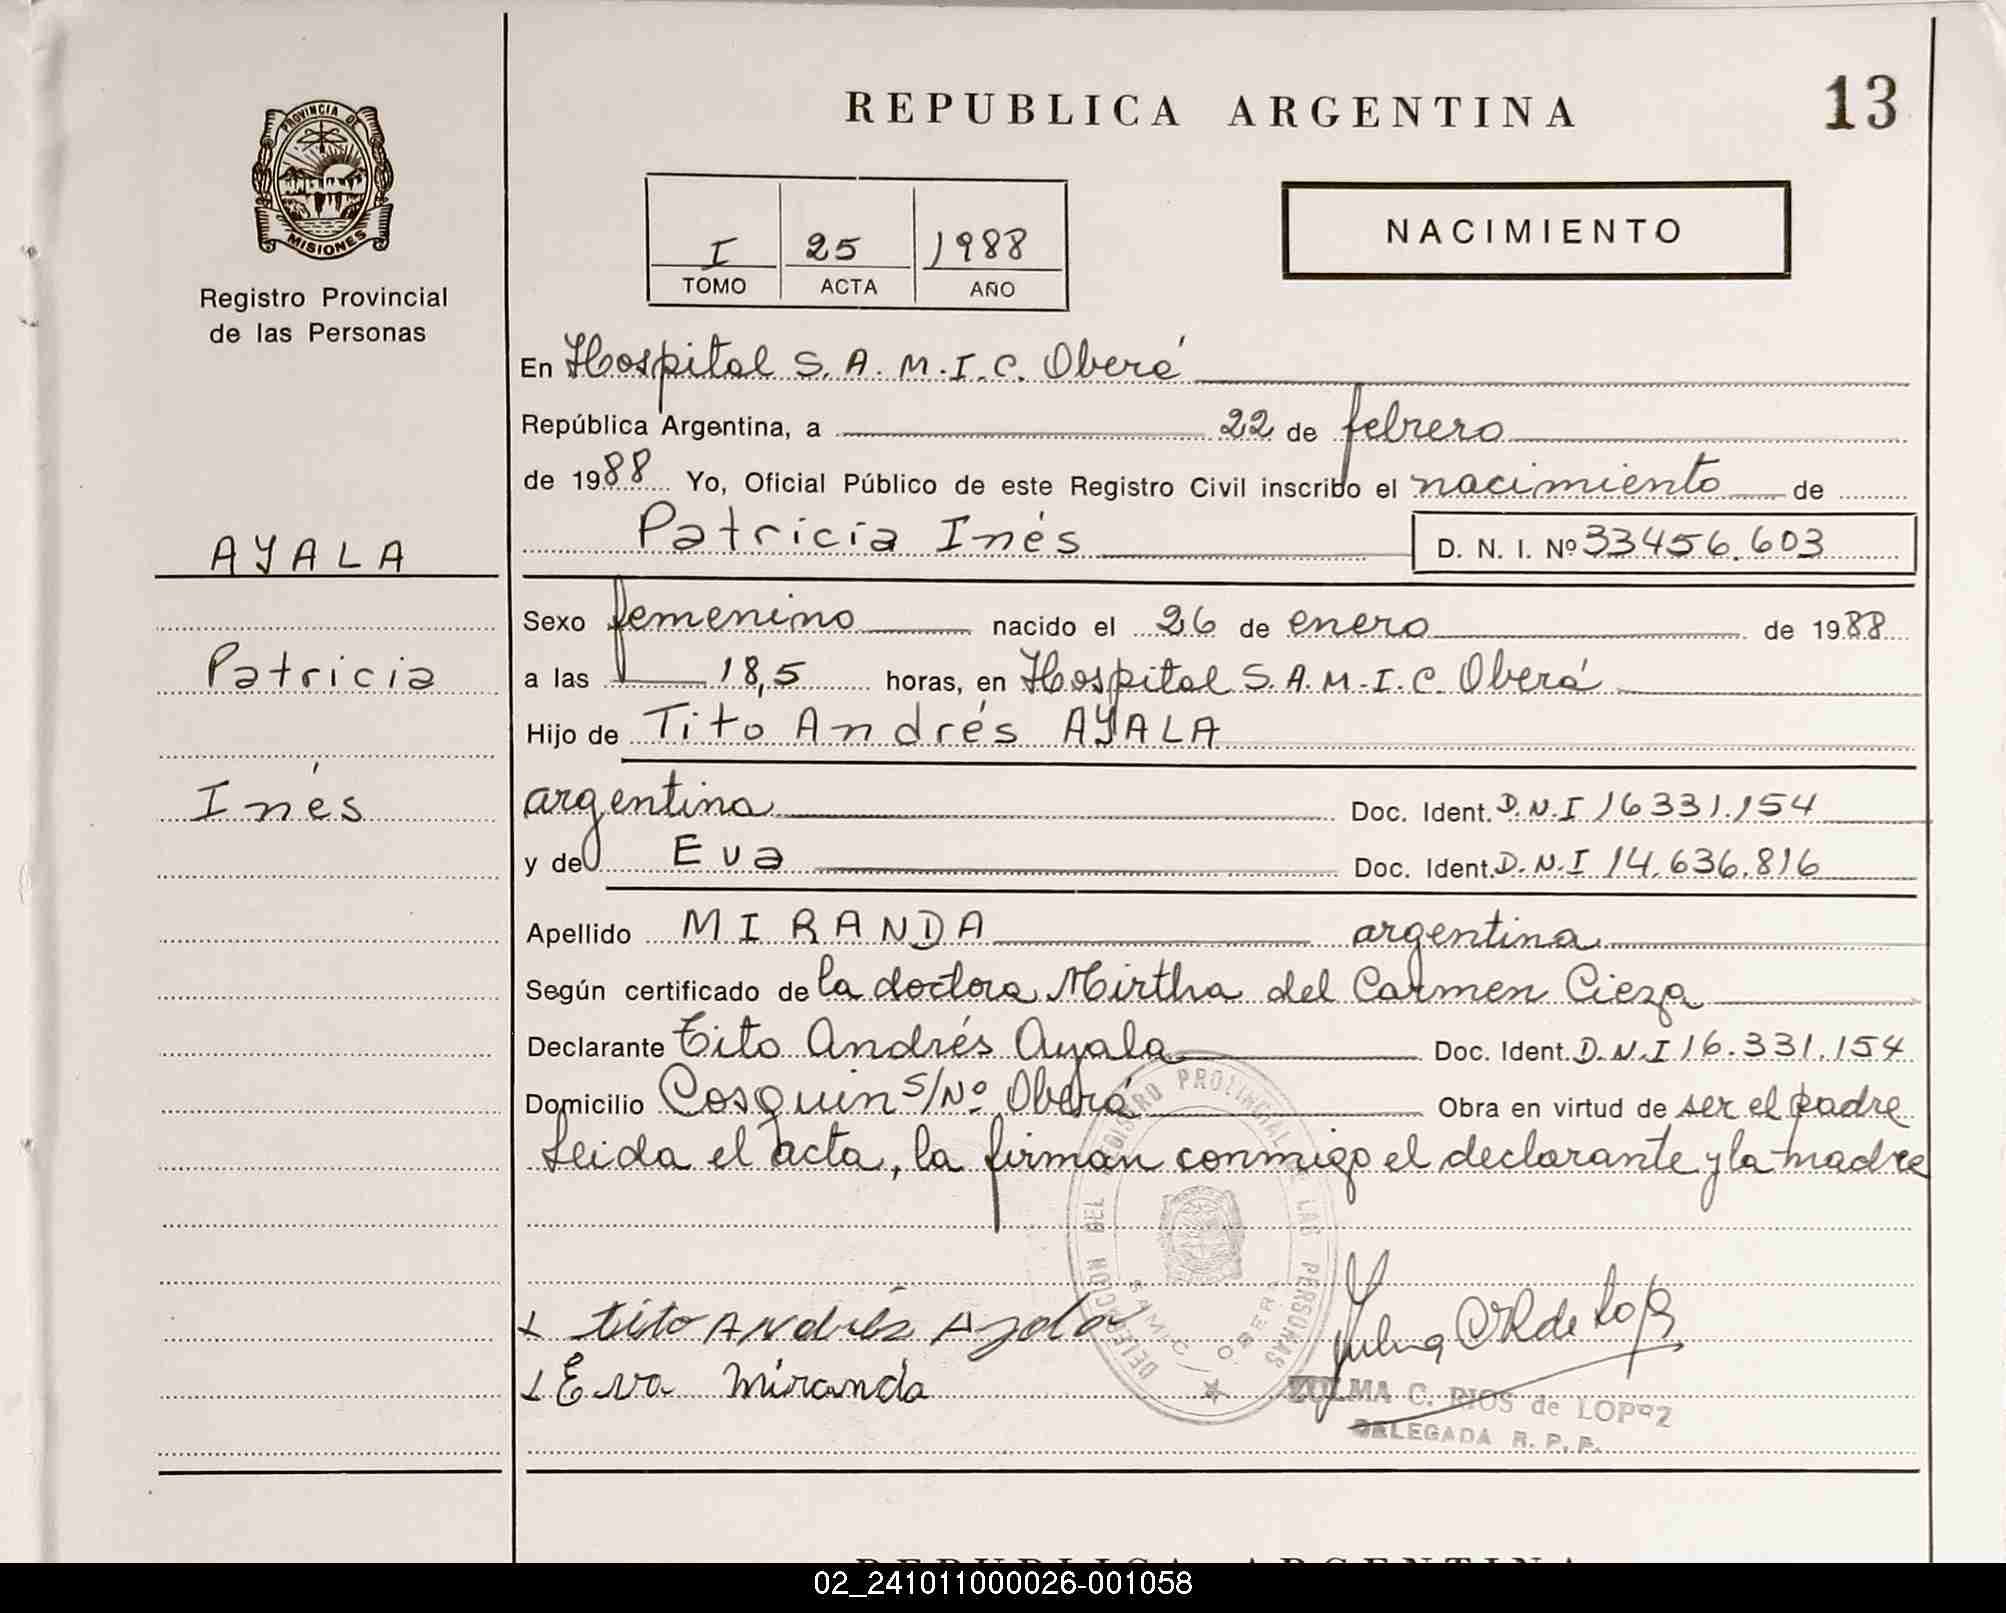 REPUBLICA ARGENTINA
13
PROVINCIA DE
MISIONES
Registro Provincial
de las Personas
I 25 1988
TOMO ACTA AÑO
NACIMIENTO
En Hospital S.A.M.I.C. Oberá
República Argentina, a 22 de febrero
de 1988 Yo, Oficial Público de este Registro Civil inscribo el nacimiento de
Patricia Inés D. N. I. Nº 33456.603
AYALA
Patricia
Inés
Sexo femenino nacido el 26 de enero de 1988
a las 18,5 horas, en Hospital S.A.M.I.C. Oberá
Hijo de Tito Andrés AYALA
argentina Doc. Ident. D.N.I 16331.154
y de Eva Doc. Ident. D.N.I 14.636.816
Apellido MIRANDA argentina
Según certificado de la doctora Mirtha del Carmen Cieza
Declarante Tito Andrés Ayala Doc. Ident. D.N.I 16.331.154
Domicilio Cosquin s/Nº Oberá Obra en virtud de ser el padre
Leida el acta, la firman conmigo el declarante y la madre
DELEGACION DEL REGISTRO PROVINCIAL DE LAS PERSONAS
SAMIC OBERA
Tito Andrés Ayala
Eva Miranda
ZULMA C. RIOS de LOPEZ
DELEGADA R. P. P.
REPUBLICA ARGENTINA
02_241011000026-001058